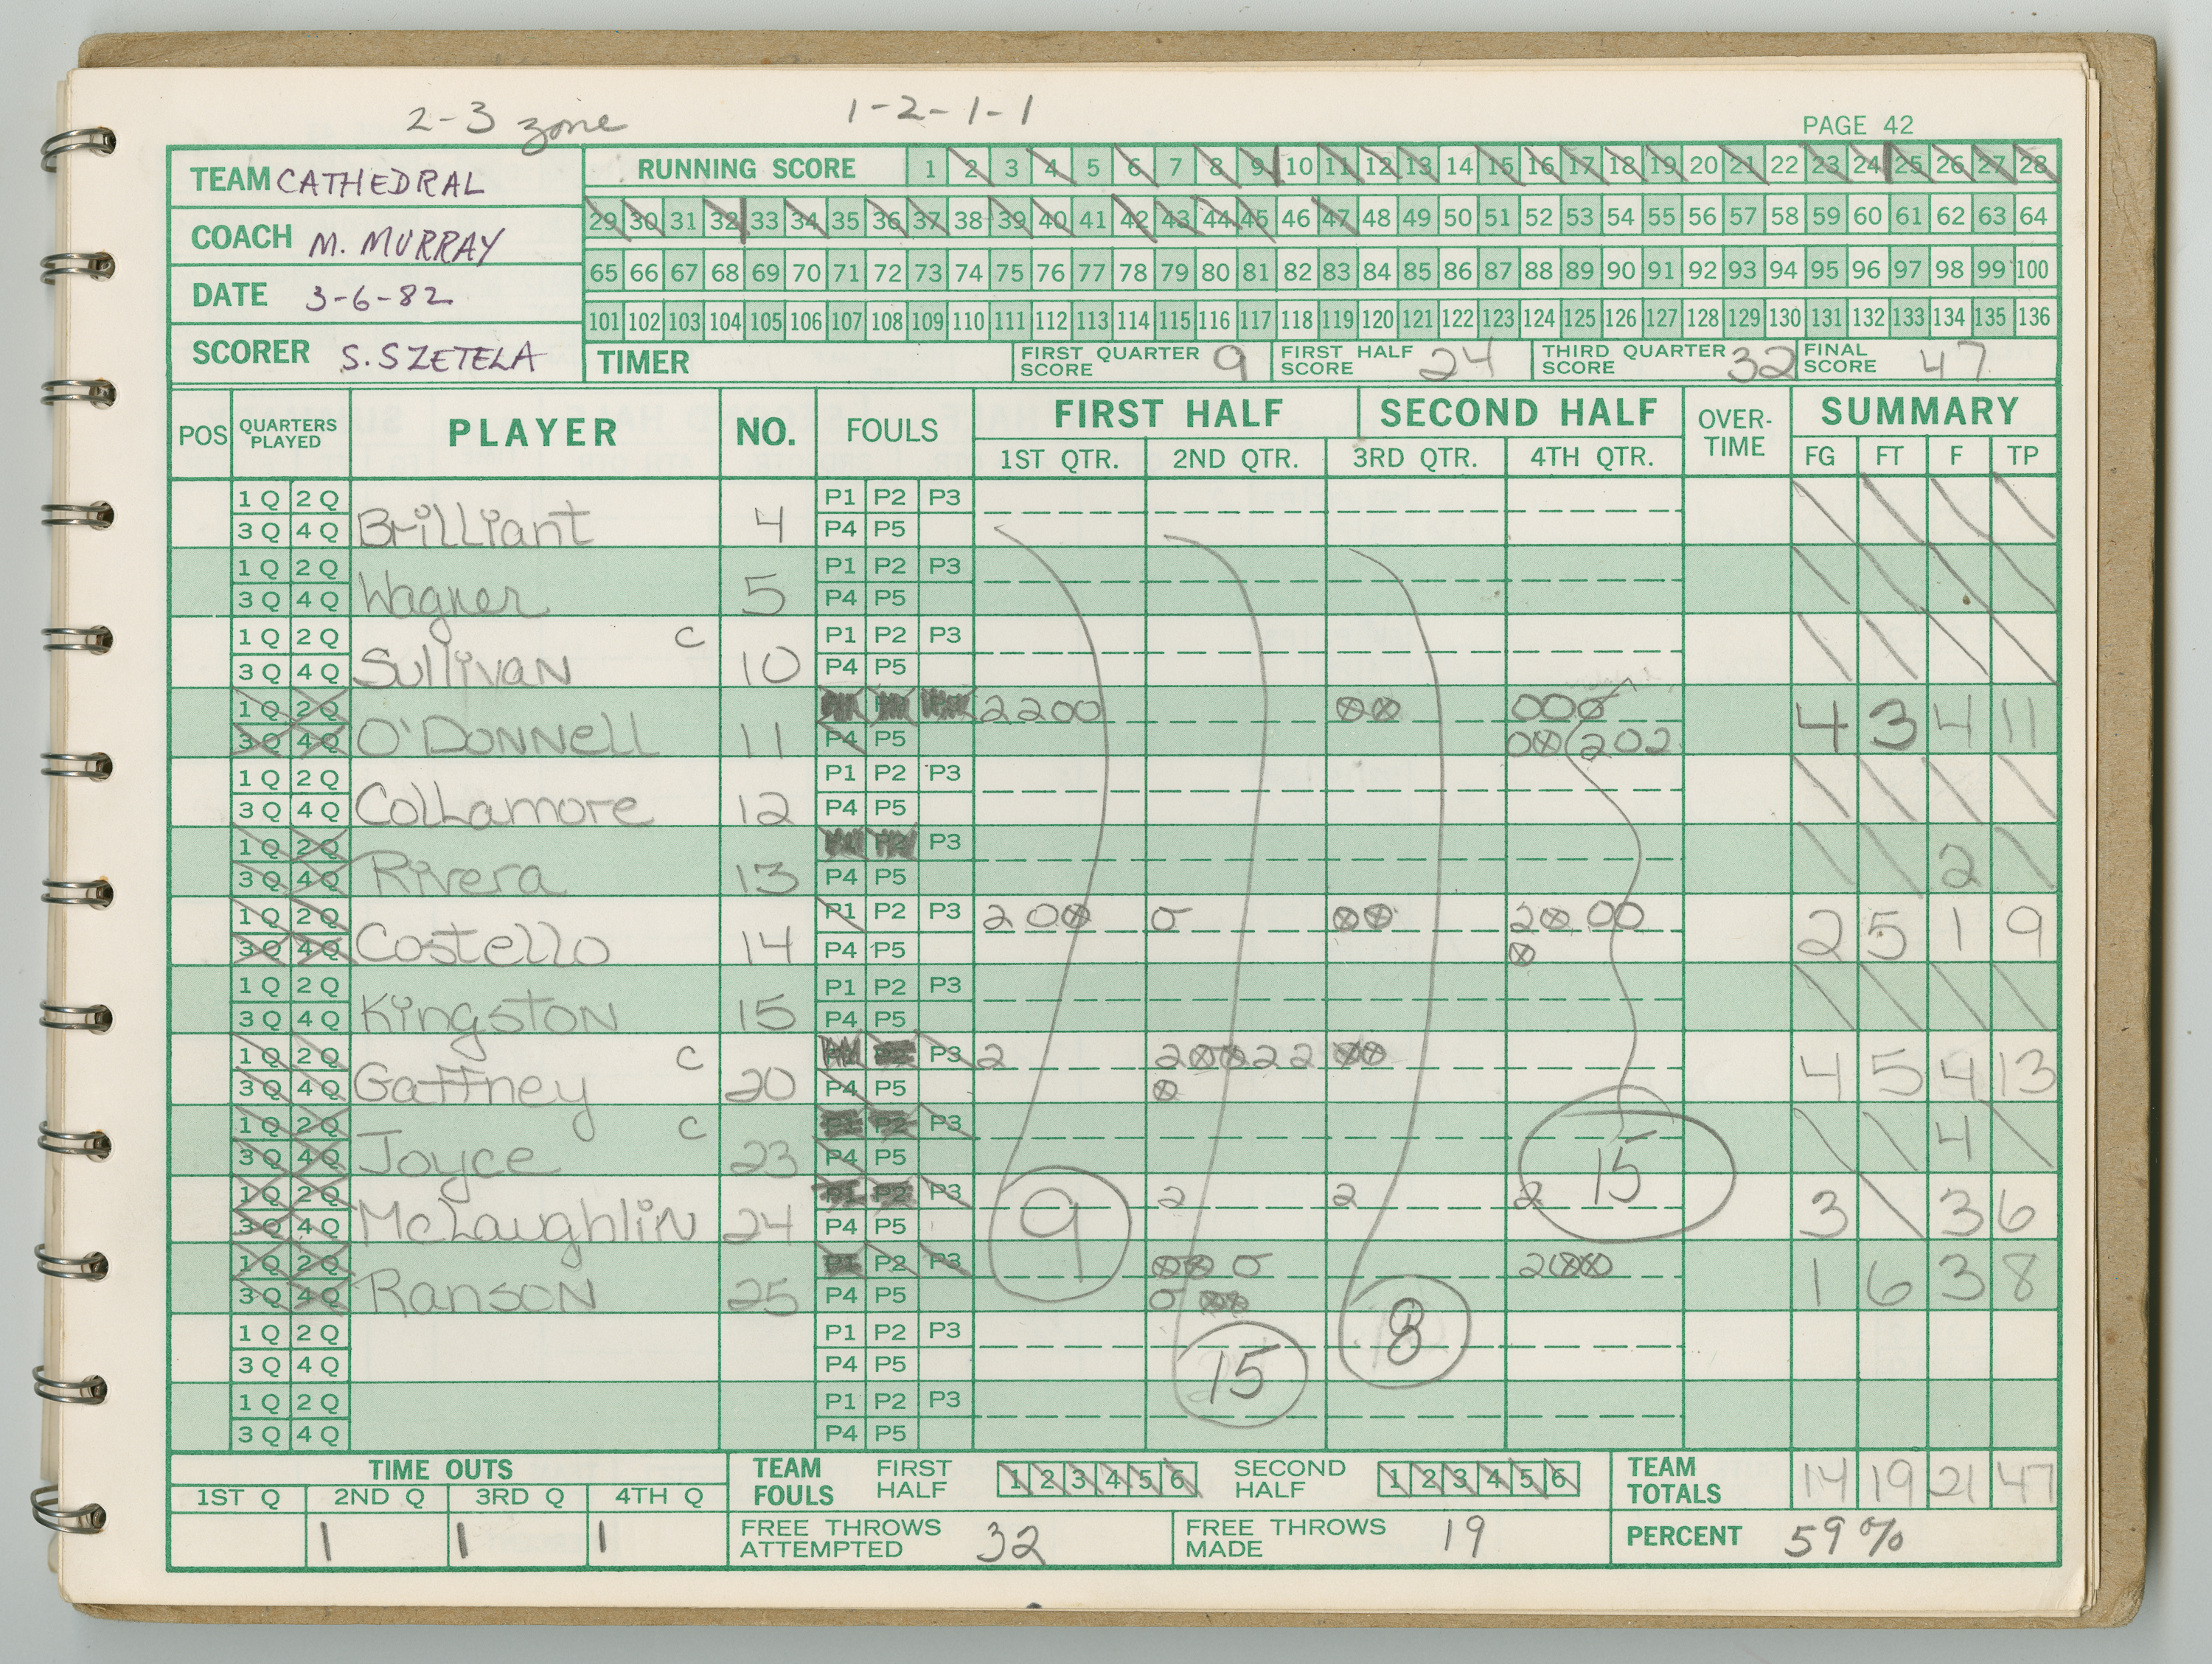 2-3 zone 1-2-1-1
PAGE 42
TEAM CATHEDRAL
COACH M. MURRAY
DATE 3-6-82
SCORER S. SZETELA
RUNNING SCORE 1 2 3 4 5 6 7 8 9 10 11 12 13 14 15 16 17 18 19 20 21 22 23 24 25 26 27 28
29 30 31 32 33 34 35 36 37 38 39 40 41 42 43 44 45 46 47 48 49 50 51 52 53 54 55 56 57 58 59 60 61 62 63 64
65 66 67 68 69 70 71 72 73 74 75 76 77 78 79 80 81 82 83 84 85 86 87 88 89 90 91 92 93 94 95 96 97 98 99 100
101 102 103 104 105 106 107 108 109 110 111 112 113 114 115 116 117 118 119 120 121 122 123 124 125 126 127 128 129 130 131 132 133 134 135 136
TIMER FIRST QUARTER SCORE 9 FIRST HALF SCORE 24 THIRD QUARTER SCORE 32 FINAL SCORE 47
POS QUARTERS PLAYED PLAYER NO. FOULS FIRST HALF SECOND HALF OVER-TIME SUMMARY
1ST QTR. 2ND QTR. 3RD QTR. 4TH QTR. FG FT F TP
1 Q 2 Q P1 P2 P3
3 Q 4 Q Brilliant 4 P4 P5
1 Q 2 Q P1 P2 P3
3 Q 4 Q Wagner 5 P4 P5
1 Q 2 Q C P1 P2 P3
3 Q 4 Q Sullivan 10 P4 P5
1 Q 2 Q 2200 ⊗⊗ 000
3 Q 4 Q O'Donnell 11 P4 P5 0⊗(202 4 3 4 11
1 Q 2 Q P1 P2 P3
3 Q 4 Q Collamore 12 P4 P5
1 Q 2 Q P3
3 Q 4 Q Rivera 13 P4 P5 2
1 Q 2 Q P1 P2 P3 2 0⊗ 0 ⊗⊗ 2⊗ 00
3 Q 4 Q Costello 14 P4 P5 ⊗ 2 5 1 9
1 Q 2 Q P1 P2 P3
3 Q 4 Q Kingston 15 P4 P5
1 Q 2 Q C P3 2 2⊗⊗22 ⊗⊗
3 Q 4 Q Gaffney 20 P4 P5 ⊗ 4 5 4 13
1 Q 2 Q C P1 P2 P3
3 Q 4 Q Joyce 23 P4 P5 4
1 Q 2 Q P1 P2 P3 2 2 2 15
3 Q 4 Q McLaughlin 24 P4 P5 9 3 3 6
1 Q 2 Q P1 P2 P3 ⊗⊗ 0 2⊗⊗
3 Q 4 Q Ranson 25 P4 P5 0 ⊗⊗ 1 6 3 8
1 Q 2 Q P1 P2 P3 8
3 Q 4 Q P4 P5 15
1 Q 2 Q P1 P2 P3
3 Q 4 Q P4 P5
TIME OUTS
1ST Q 2ND Q 3RD Q 4TH Q
1 1 1
TEAM FOULS FIRST HALF 1 2 3 4 5 6 SECOND HALF 1 2 3 4 5 6
TEAM TOTALS 14 19 21 47
FREE THROWS ATTEMPTED 32 FREE THROWS MADE 19 PERCENT 59%